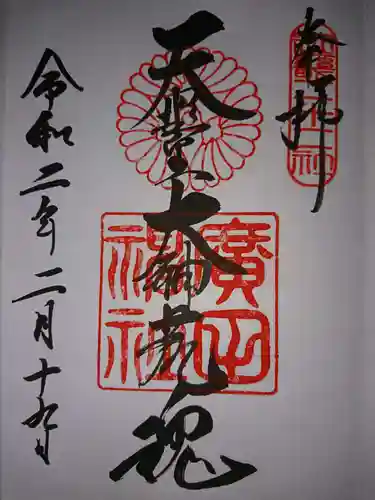 奉拝
天照大御荒魂
廣田
神社
令和二年二月十九日